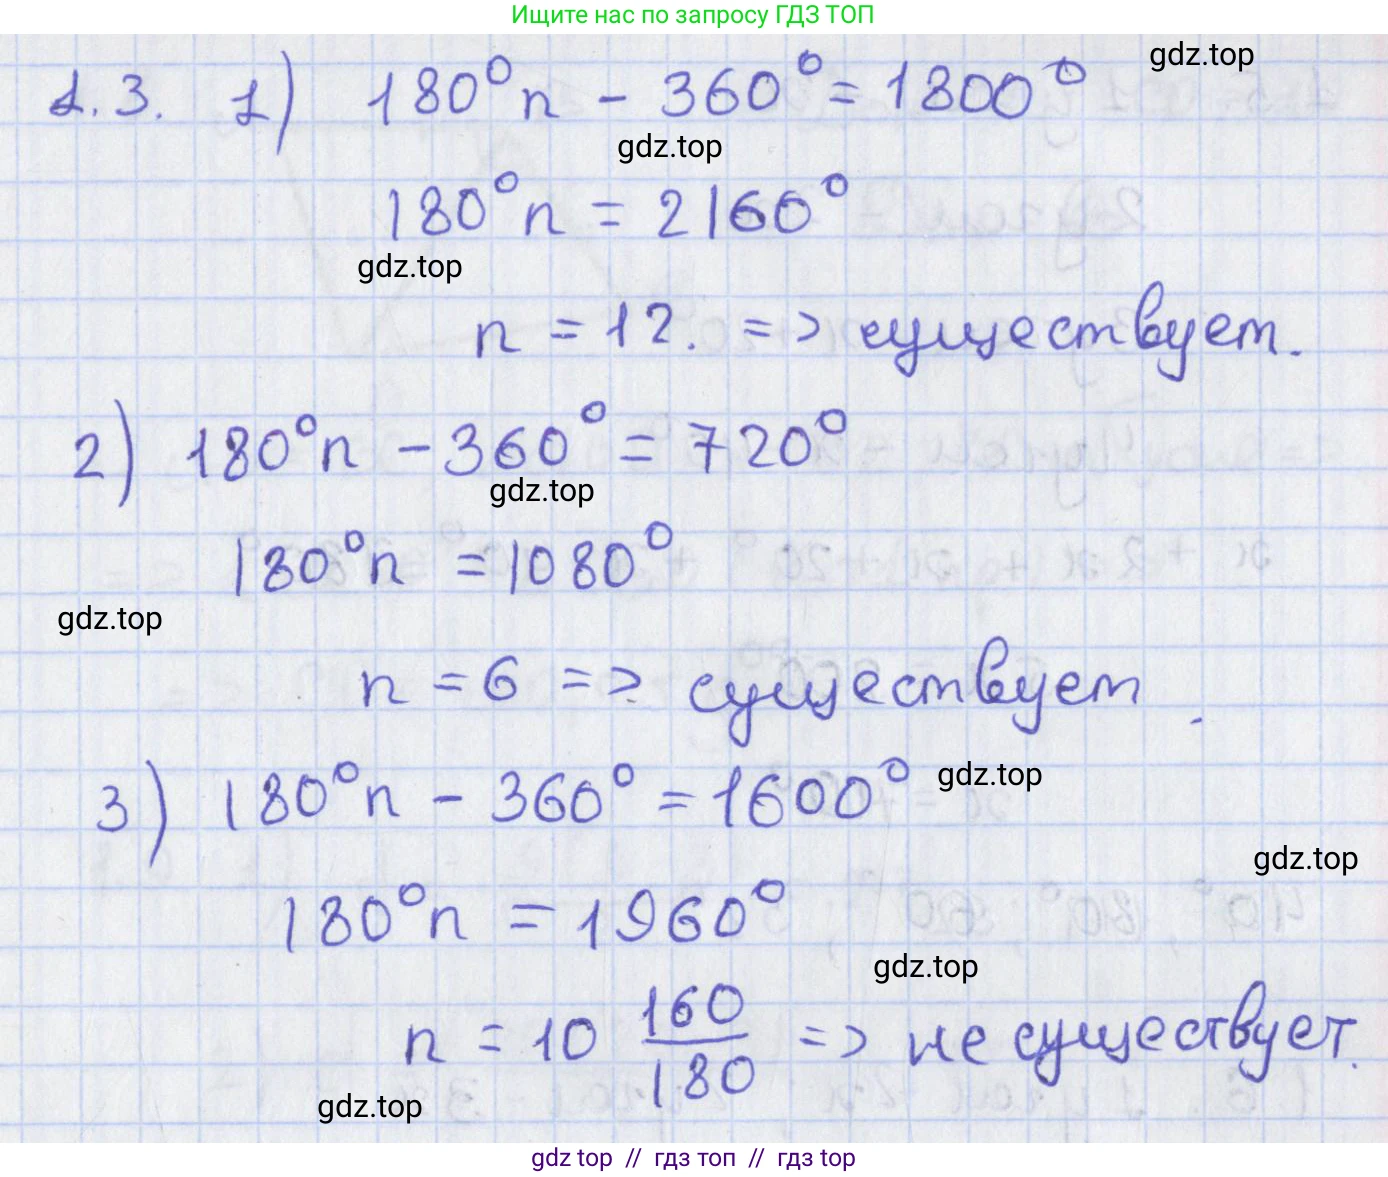 Ищите нас по запросу ГДЗ ТОП
gdz.top
1.3. 1) 180°n - 360° = 1800°
gdz.top
180°n = 2160°
gdz.top
n = 12. => существует.
2) 180°n - 360° = 720°
gdz.top
180°n = 1080°
gdz.top
n = 6 => существует.
3) 180°n - 360° = 1600°
gdz.top
gdz.top
180°n = 1960°
gdz.top
n = 10 160/180 => не существует.
gdz.top
gdz top // гдз топ // гдз top